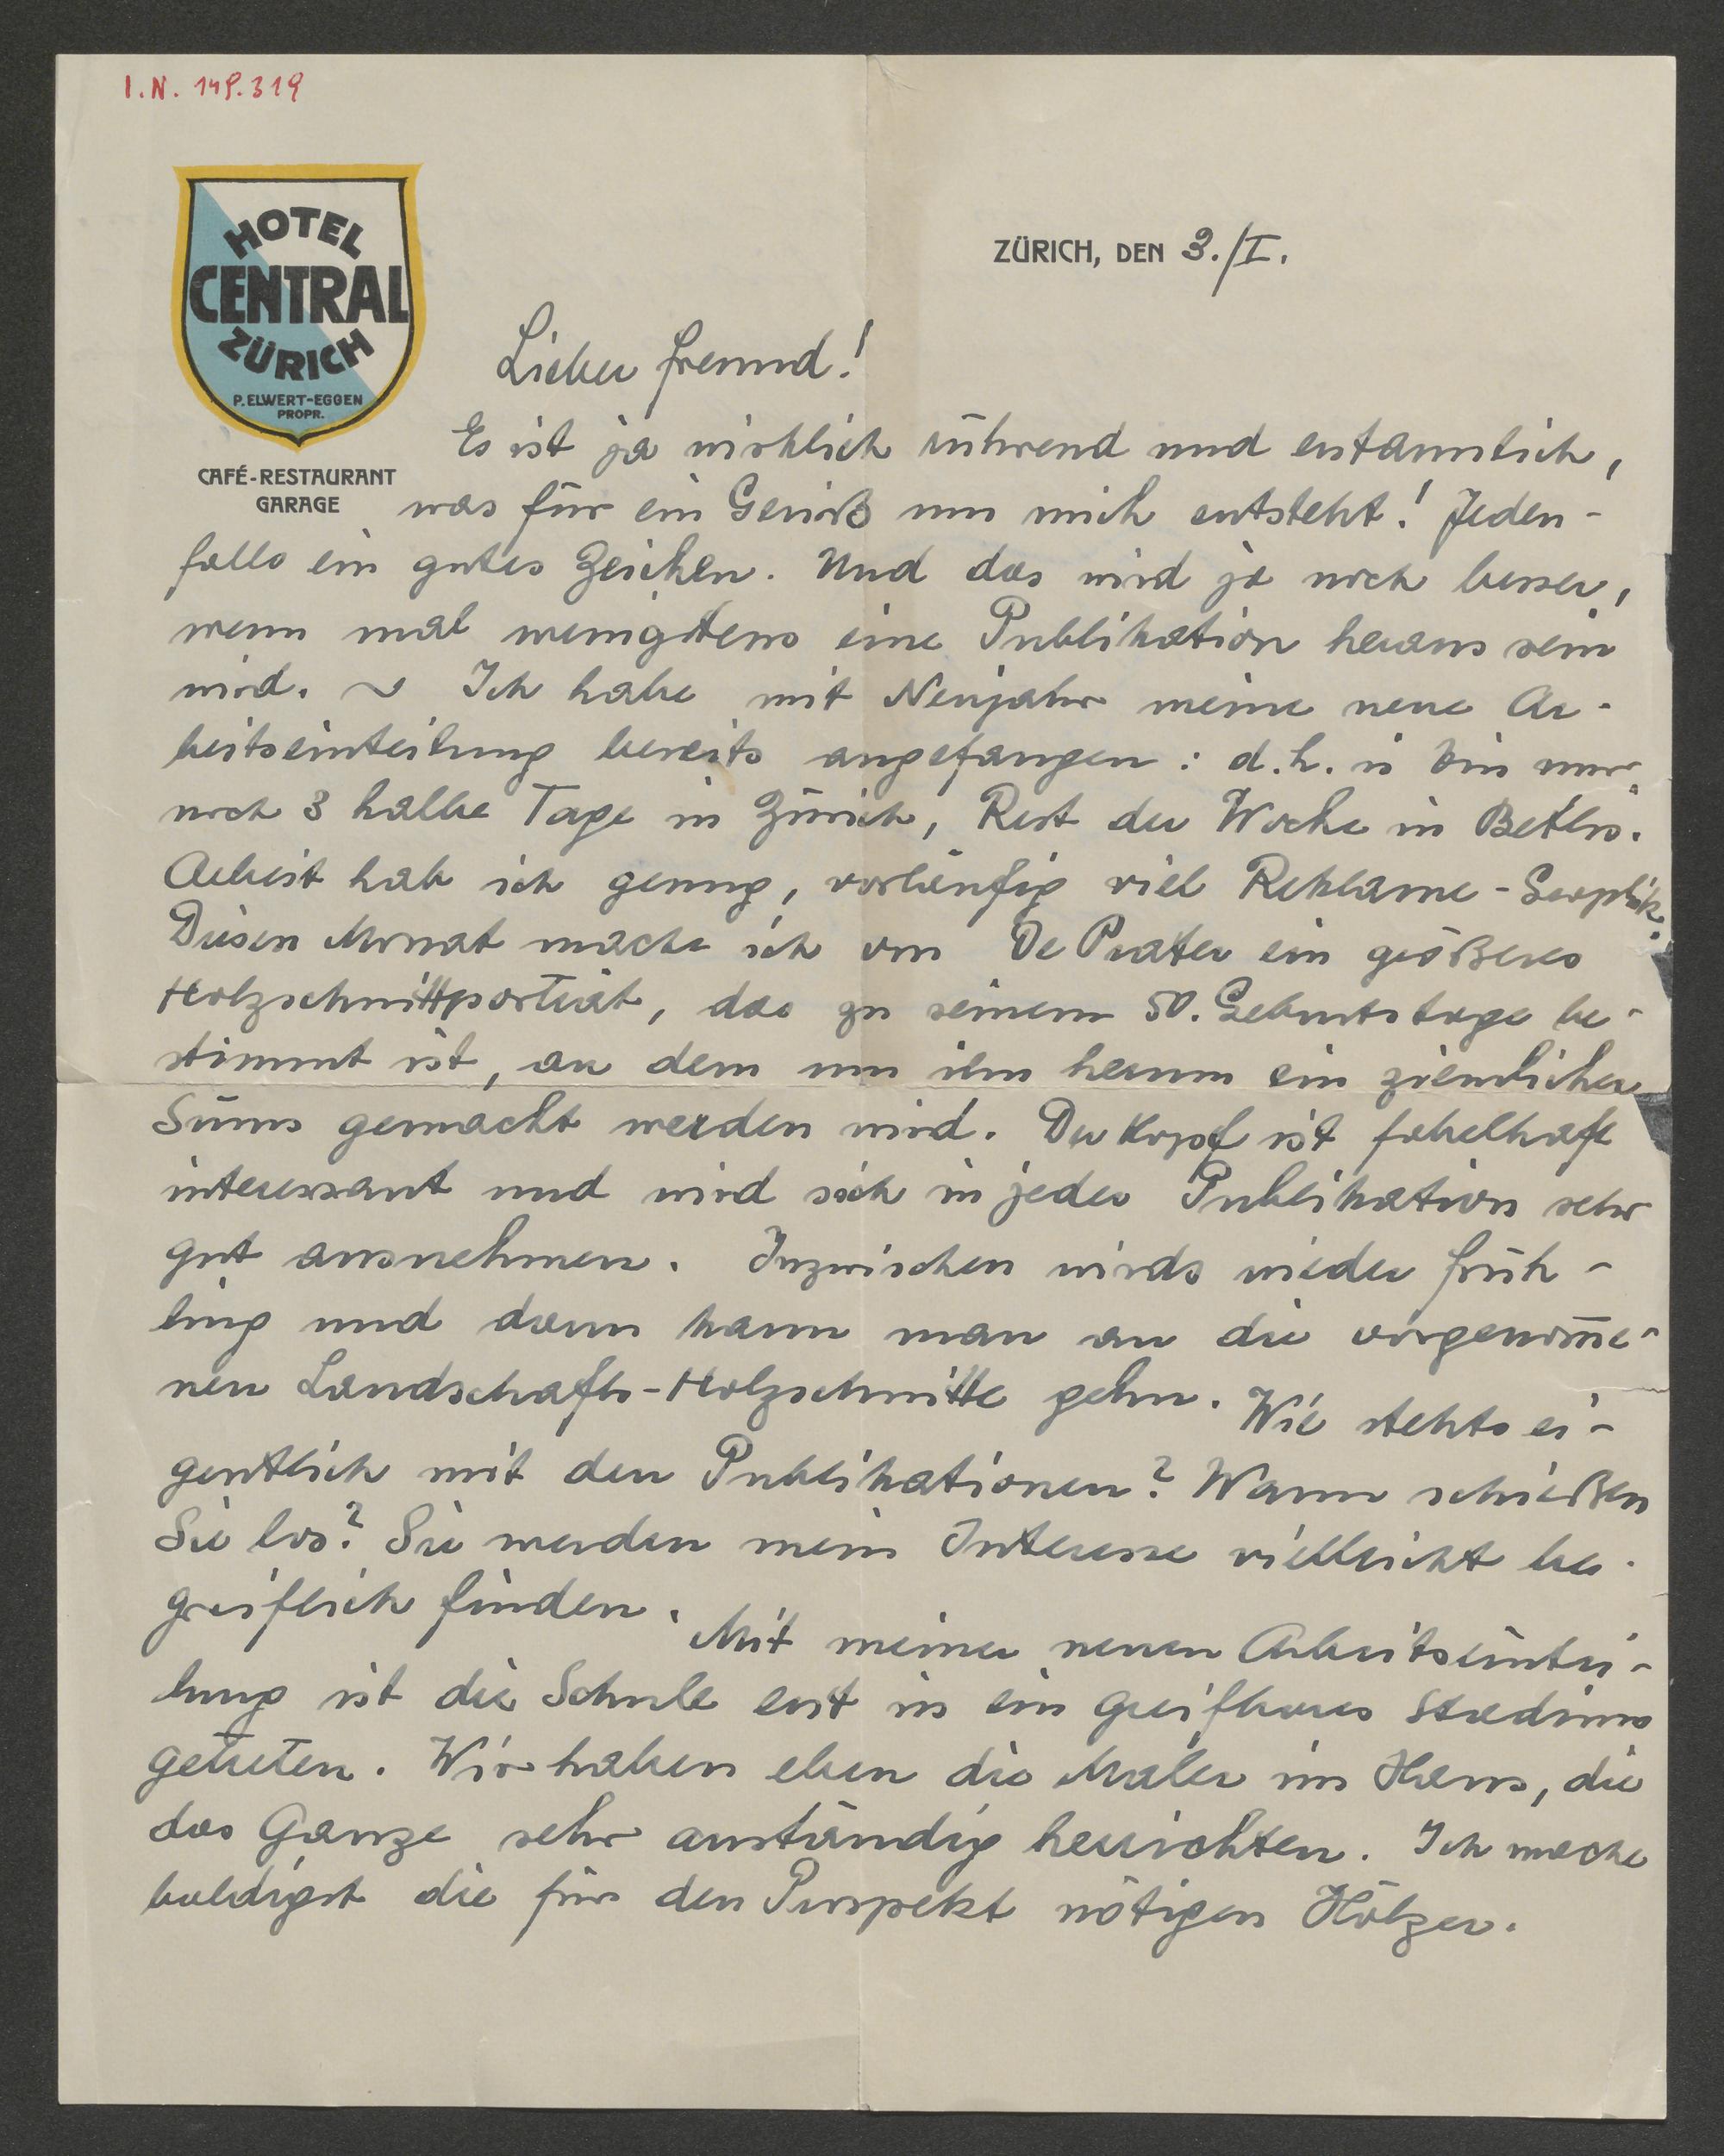 I.N. 149.319
HOTEL
CENTRAL
ZÜRICH
P. ELWERT-EGGEN
PROPR.
CAFÉ-RESTAURANT
GARAGE
ZÜRICH, DEN 3./I.
Lieber Freund!
Es ist ja wirklich rührend und erstaunlich,
was für ein Geriß um mich entsteht! Jeden-
falls ein gutes Zeichen. Und das wird ja noch besser,
wenn mal wenigstens eine Publikation heraus sein
wird. ~ Ich habe mit Neujahr meine neue Ar-
beitseinteilung bereits angefangen: d.h. i bin nur
noch 3 halbe Tage in Zürich, Rest der Woche in Betlis.
Arbeit hab ich genug, vorläufig viel Reklame-Graphik.
Diesen Monat mache ich von De Prater ein größeres
Holzschnittporträt, das zu seinem 50. Geburtstage be-
stimmt ist, an dem um ihn herum ein ziemlicher
Sums gemacht werden wird. Der Kopf ist fabelhaft
interessant und wird sich in jeder Publikation sehr
gut ausnehmen. Inzwischen wirds wieder Früh-
ling und dann kann man an die vorgenom̅e-
nen Landschafts-Holzschnitte gehn. Wie stehts ei-
gentlich mit den Publikationen? Wann schießen
Sie los? Sie werden mein Interesse vielleicht be-
greiflich finden. Mit meiner neuen Arbeitseintei-
lung ist die Schule erst in ein greifbares Stadium
getreten. Wir haben eben die Maler im Haus, die
das Ganze sehr anständig herrichten. Ich mache
baldigst die für den Prospekt nötigen Hölzer.